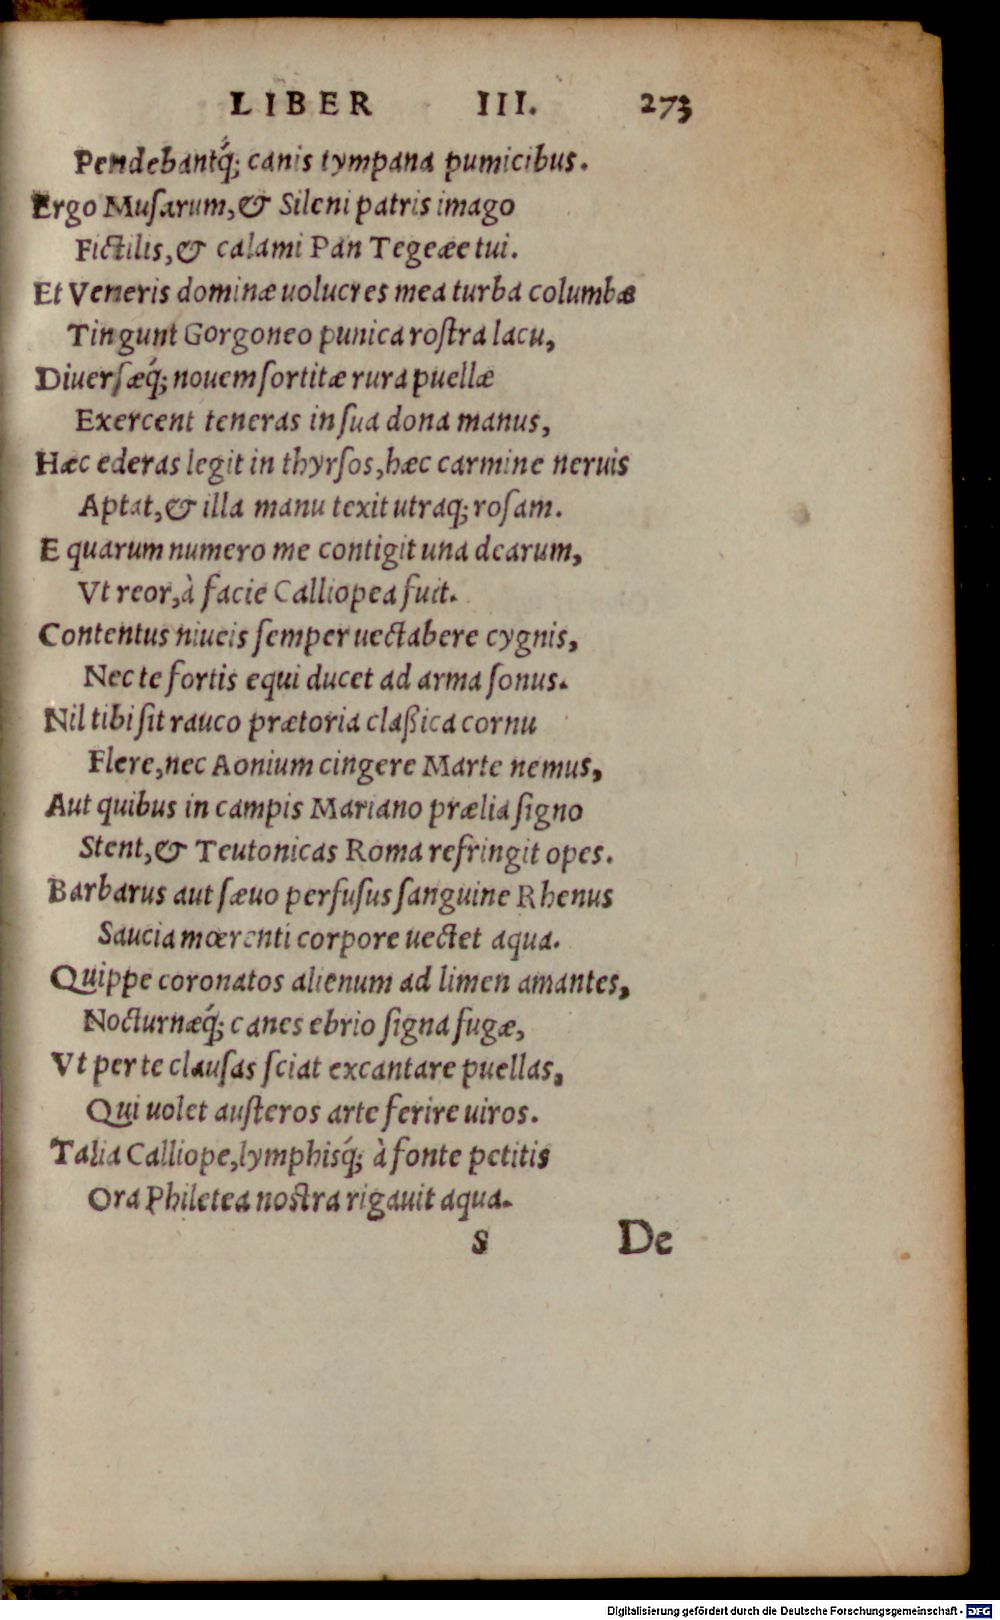 LIBER III. 273
Pendebantq́; canis tympana pumicibus.
Ergo Muſarum, & Sileni patris imago
Fictilis, & calami Pan Tegeæe tui.
Et Veneris dominæ uolucres mea turba columbæ
Tingunt Gorgoneo punica roſtra lacu,
Diuerſæq́; nouem ſortitæ rura puellæ
Exercent teneras in ſua dona manus,
Hæc ederas legit in thyrſos, hæc carmine neruis
Aptat, & illa manu texit utraq; roſam.
E quarum numero me contigit una dearum,
Vt reor, à facie Calliopea fuit.
Contentus niueis ſemper uectabere cygnis,
Nec te fortis equi ducet ad arma ſonus.
Nil tibi ſit rauco prætoria claßica cornu
Flere, nec Aonium cingere Marte nemus,
Aut quibus in campis Mariano prælia ſigno
Stent, & Teutonicas Roma refringit opes.
Barbarus aut ſæuo perfuſus ſanguine Rhenus
Saucia mœrenti corpore uectet aqua.
Quippe coronatos alienum ad limen amantes,
Nocturnæq́; canes ebrio ſigna fugæ,
Vt per te clauſas ſciat excantare puellas,
Qui uolet auſteros arte ferire uiros.
Talia Calliope, lymphisq́; à fonte petitis
Ora Philetea noſtra rigauit aqua.
S De
Digitalisierung gefördert durch die Deutsche Forschungsgemeinschaft - DFG